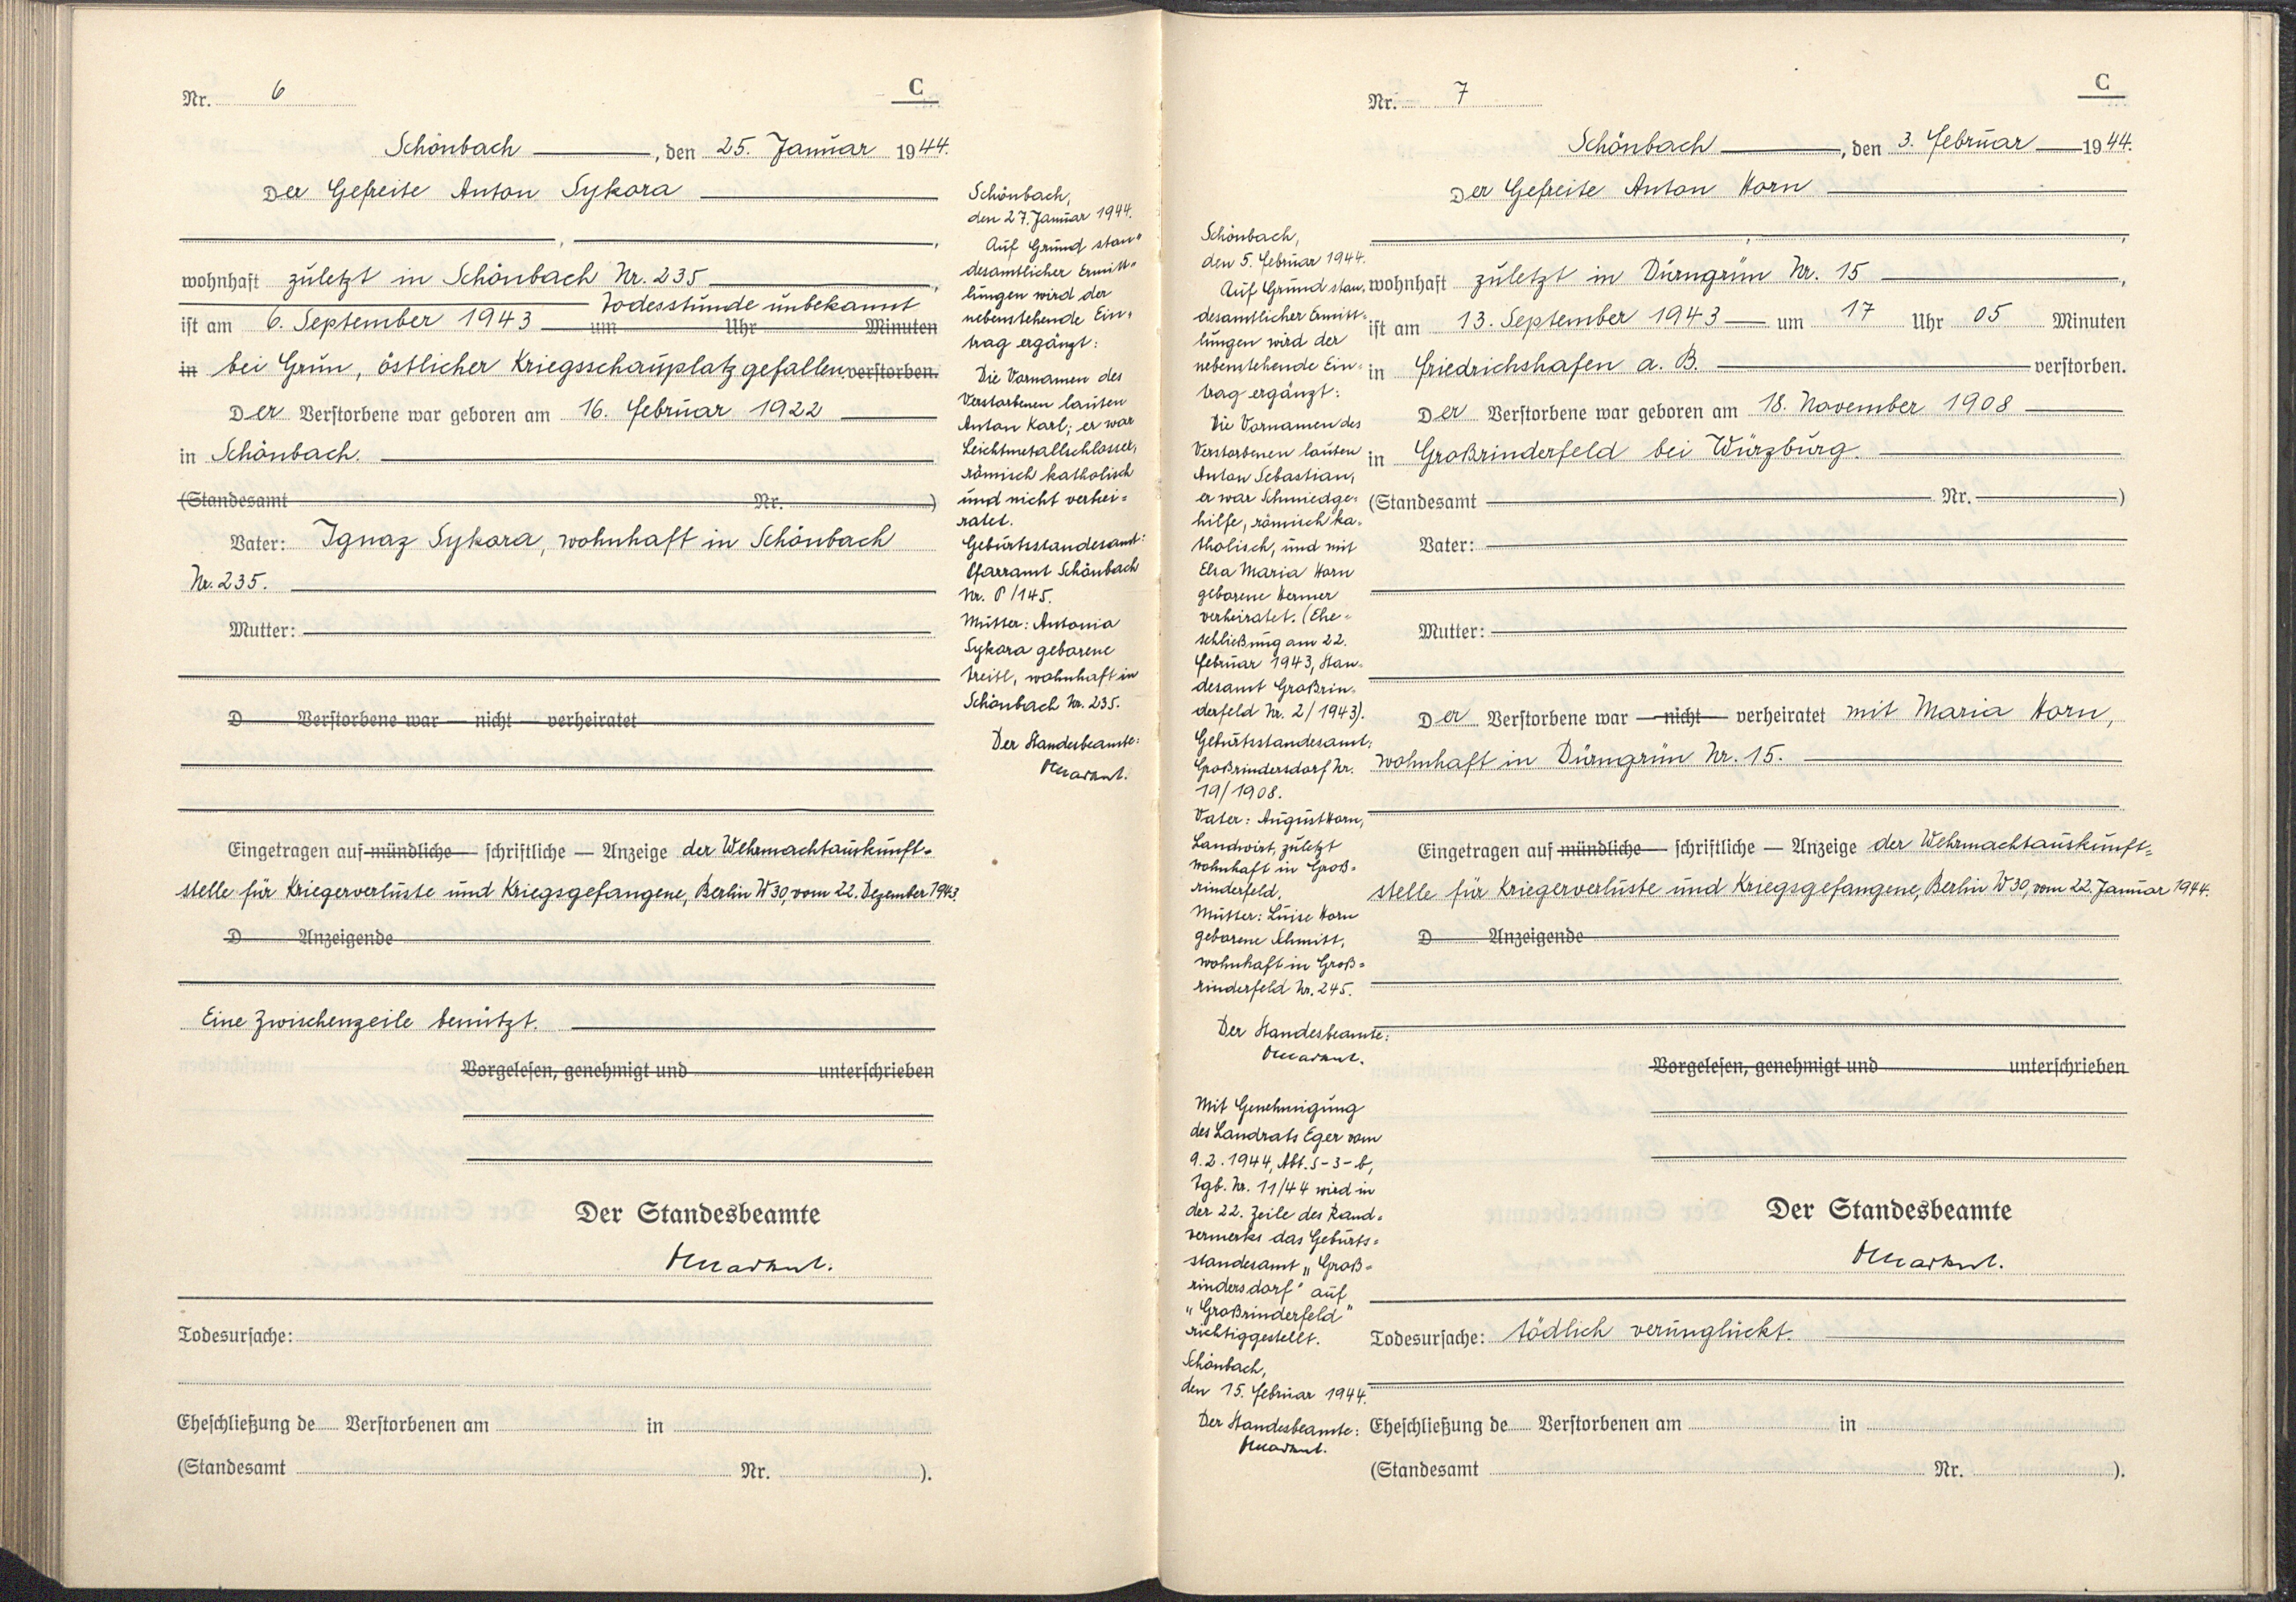 Nr. 6
C
Schönbach, den 25. Januar 1944.
Der Gefreite Anton Sykora
wohnhaft zuletzt in Schönbach Nr. 235
Todesstunde unbekannt
ist am 6. September 1943 um Uhr Minuten
in bei Grun, östlicher Kriegsschauplatz gefallen verstorben.
Der Verstorbene war geboren am 16. Februar 1922
in Schönbach.
(Standesamt Nr. )
Vater: Ignaz Sykora, wohnhaft in Schönbach
Nr. 235.
Mutter:
D Verstorbene war — nicht — verheiratet
Eingetragen auf mündliche — schriftliche — Anzeige der Wehrmachtauskunft-
stelle für Kriegerverluste und Kriegsgefangene, Berlin W 30, vom 22. Dezember 1943.
D Anzeigende
Eine Zwischenzeile benützt.
Vorgelesen, genehmigt und unterschrieben
Der Standesbeamte
Todesursache:
Eheschließung de Verstorbenen am in
(Standesamt Nr. ).
Schönbach,
den 27. Januar 1944.
Auf Grund stan-
desamtlicher Ermitt-
lungen wird der
nebenstehende Ein-
trag ergänzt:
Die Vornamen des
Verstorbenen lauten
Anton Karl; er war
Leichtmetallschlosser,
römisch katholisch
und nicht verhei-
ratet.
Geburtsstandesamt:
Pfarramt Schönbach
Nr. P/145.
Mutter: Antonia
Sykora geborene
Treitl, wohnhaft in
Schönbach Nr. 235.
Der Standesbeamte:
Nr. 7
C
Schönbach, den 3. Februar 1944.
Der Gefreite Anton Horn
wohnhaft zuletzt in Dürngrün Nr. 15
ist am 13. September 1943 um 17 Uhr 05 Minuten
in Friedrichshafen a. B. verstorben.
Der Verstorbene war geboren am 18. November 1908
in Großrinderfeld bei Würzburg.
(Standesamt Nr. )
Vater:
Mutter:
Der Verstorbene war — nicht — verheiratet mit Maria Horn,
wohnhaft in Dürngrün Nr. 15.
Eingetragen auf mündliche — schriftliche — Anzeige der Wehrmachtauskunft-
stelle für Kriegerverluste und Kriegsgefangene, Berlin W 30, vom 22. Januar 1944.
D Anzeigende
Vorgelesen, genehmigt und unterschrieben
Der Standesbeamte
Todesursache: tödlich verunglückt.
Eheschließung de Verstorbenen am in
(Standesamt Nr. ).
Schönbach,
den 5. Februar 1944.
Auf Grund stan-
desamtlicher Ermitt-
lungen wird der
nebenstehende Ein-
trag ergänzt:
Die Vornamen des
Verstorbenen lauten
Anton Sebastian,
er war Schmiedge-
hilfe, römisch ka-
tholisch, und mit
Elsa Maria Horn
geborene Hermer
verheiratet. (Ehe-
schließung am 22.
Februar 1943, Stan-
desamt Großrin-
derfeld Nr. 2/1943).
Geburtsstandesamt:
Großrindersdorf Nr.
19/1908.
Vater: August Horn,
Landwirt, zuletzt
wohnhaft in Groß-
rinderfeld.
Mutter: Luise Horn
geborene Schmitt,
wohnhaft in Groß-
rinderfeld Nr. 245.
Der Standesbeamte:
Mit Genehmigung
des Landrats Eger vom
9.2.1944, Abt. S-3-b,
Tgb. Nr. 11/44 wird in
der 22. Zeile des Rand-
vermerks das Geburts-
standesamt „Groß-
rindersdorf" auf
„Großrinderfeld"
richtiggestellt.
Schönbach,
den 15. Februar 1944.
Der Standesbeamte: